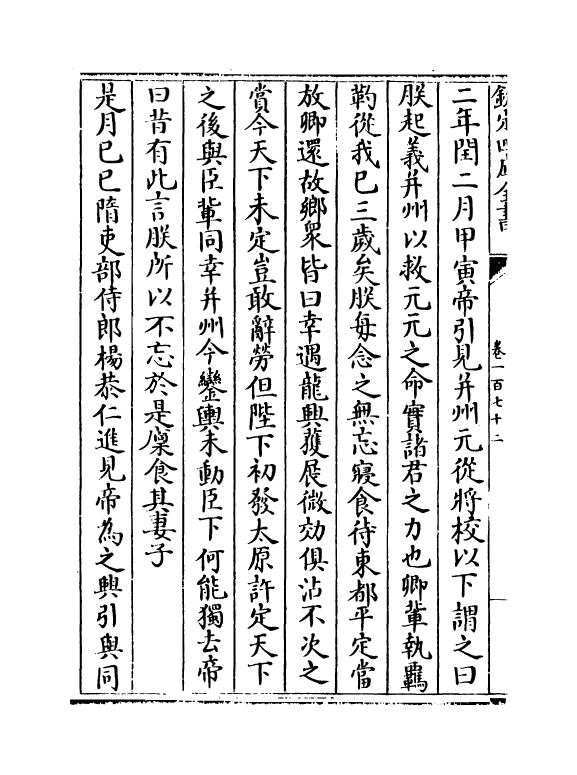 欽定四庫全書
卷一百七十二
二年閏二月甲寅帝引見并州元從將校以下謂之曰
朕起義并州以救元元之命實諸君之力也卿輩執羈
靮從我已三歲矣朕每念之無忘寢食待東都平定當
放卿還故鄉衆皆曰幸遇龍興獲展微効俱沾不次之
賞今天下未定豈敢辭勞但陛下初發太原許定天下
之後與臣輩同幸并州今鑾輿未動臣下何能獨去帝
曰昔有此言朕所以不忘於是廩食其妻子
是月已巳隋吏部侍郎楊恭仁進見帝為之興引與同